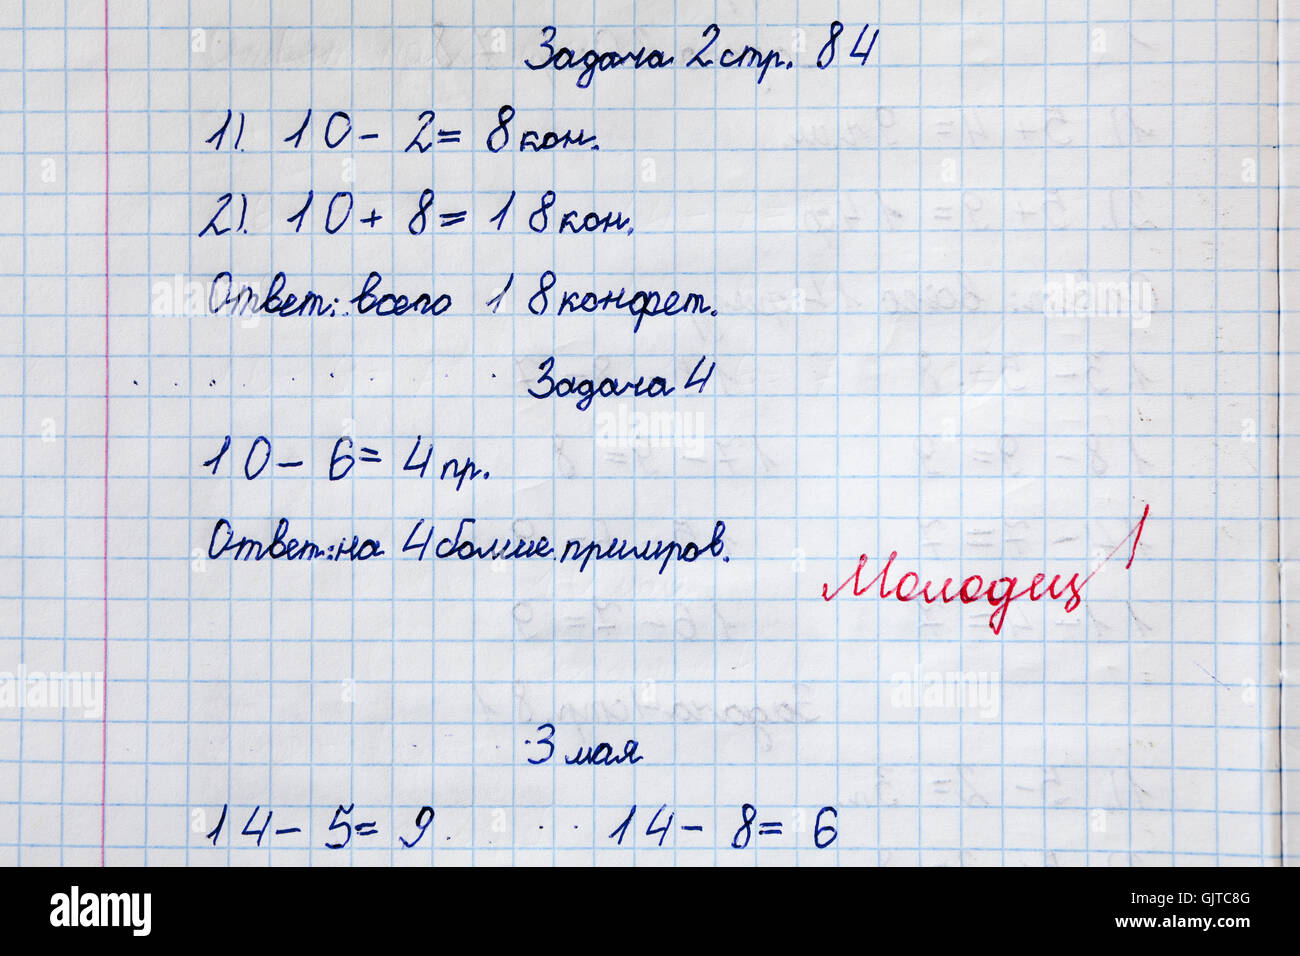 Задача 2 стр. 84
1). 10 - 2 = 8 кон.
2). 10 + 8 = 18 кон.
Ответ: всего 18 конфет.
Задача 4
10 - 6 = 4 пр.
Ответ: на 4 больше примеров.
Молодец!
3 мая
14 - 5 = 9 14 - 8 = 6
alamy
Image ID: GJTC8G
www.alamy.com